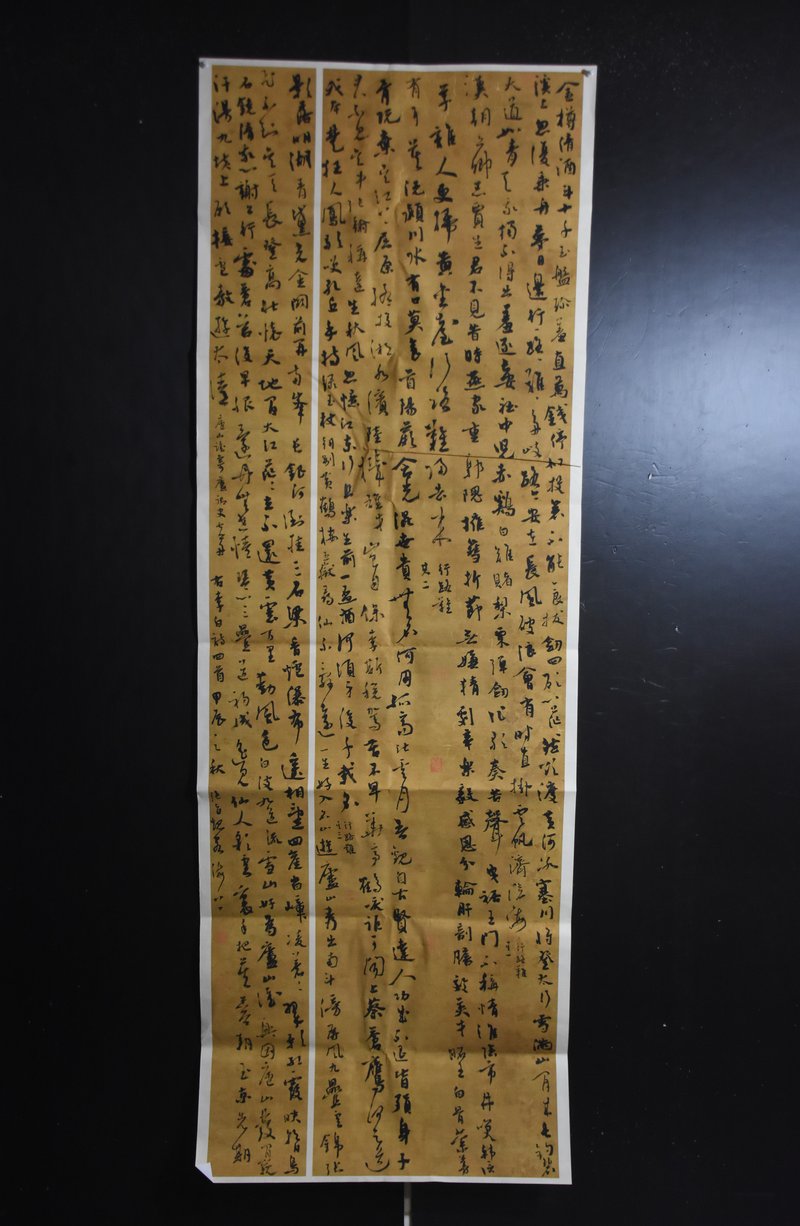 金樽清酒斗十千玉盤珍羞直萬錢停杯投箸不能食拔劍四顧心茫然欲渡黃河冰塞川將登太行雪滿山閒來垂釣碧
溪上忽復乘舟夢日邊行路難多歧路今安在長風破浪會有時直掛雲帆濟滄海行路難其一
大道如青天我獨不得出羞逐長安社中兒赤雞白雉賭梨栗彈劍作歌奏苦聲曳裾王門不稱情淮陰市井笑韓信
漢朝公卿忌賈生君不見昔時燕家重郭隗擁篲折節無嫌猜劇辛樂毅感恩分輸肝剖膽效英才昭王白骨縈蔓
草誰人更掃黃金臺行路難歸去來行路難其二
有耳莫洗潁川水有口莫食首陽蕨含光混世貴無名何用孤高比雲月吾觀自古賢達人功成不退皆殞身子
胥既棄吳江上屈原終投湘水濱陸機雄才豈自保李斯稅駕苦不早華亭鶴唳詎可聞上蔡蒼鷹何足道
君不見吳中張翰稱達生秋風忽憶江東行且樂生前一杯酒何須身後千載名行路難其三
我本楚狂人鳳歌笑孔丘手持綠玉杖朝別黃鶴樓五嶽尋仙不辭遠一生好入名山遊廬山秀出南斗傍屏風九疊雲錦張
影落明湖青黛光金闕前開二峰長銀河倒掛三石梁香爐瀑布遙相望迴崖沓嶂凌蒼蒼翠影紅霞映朝日鳥
飛不到吳天長登高壯觀天地間大江茫茫去不還黃雲萬里動風色白波九道流雪山好為廬山謠興因廬山發閒窺
石鏡清我心謝公行處蒼苔沒早服還丹無世情琴心三疊道初成遙見仙人彩雲裏手把芙蓉朝玉京先期
汗漫九垓上願接盧敖遊太清廬山謠寄盧侍御虛舟右李白詩四首甲辰之秋